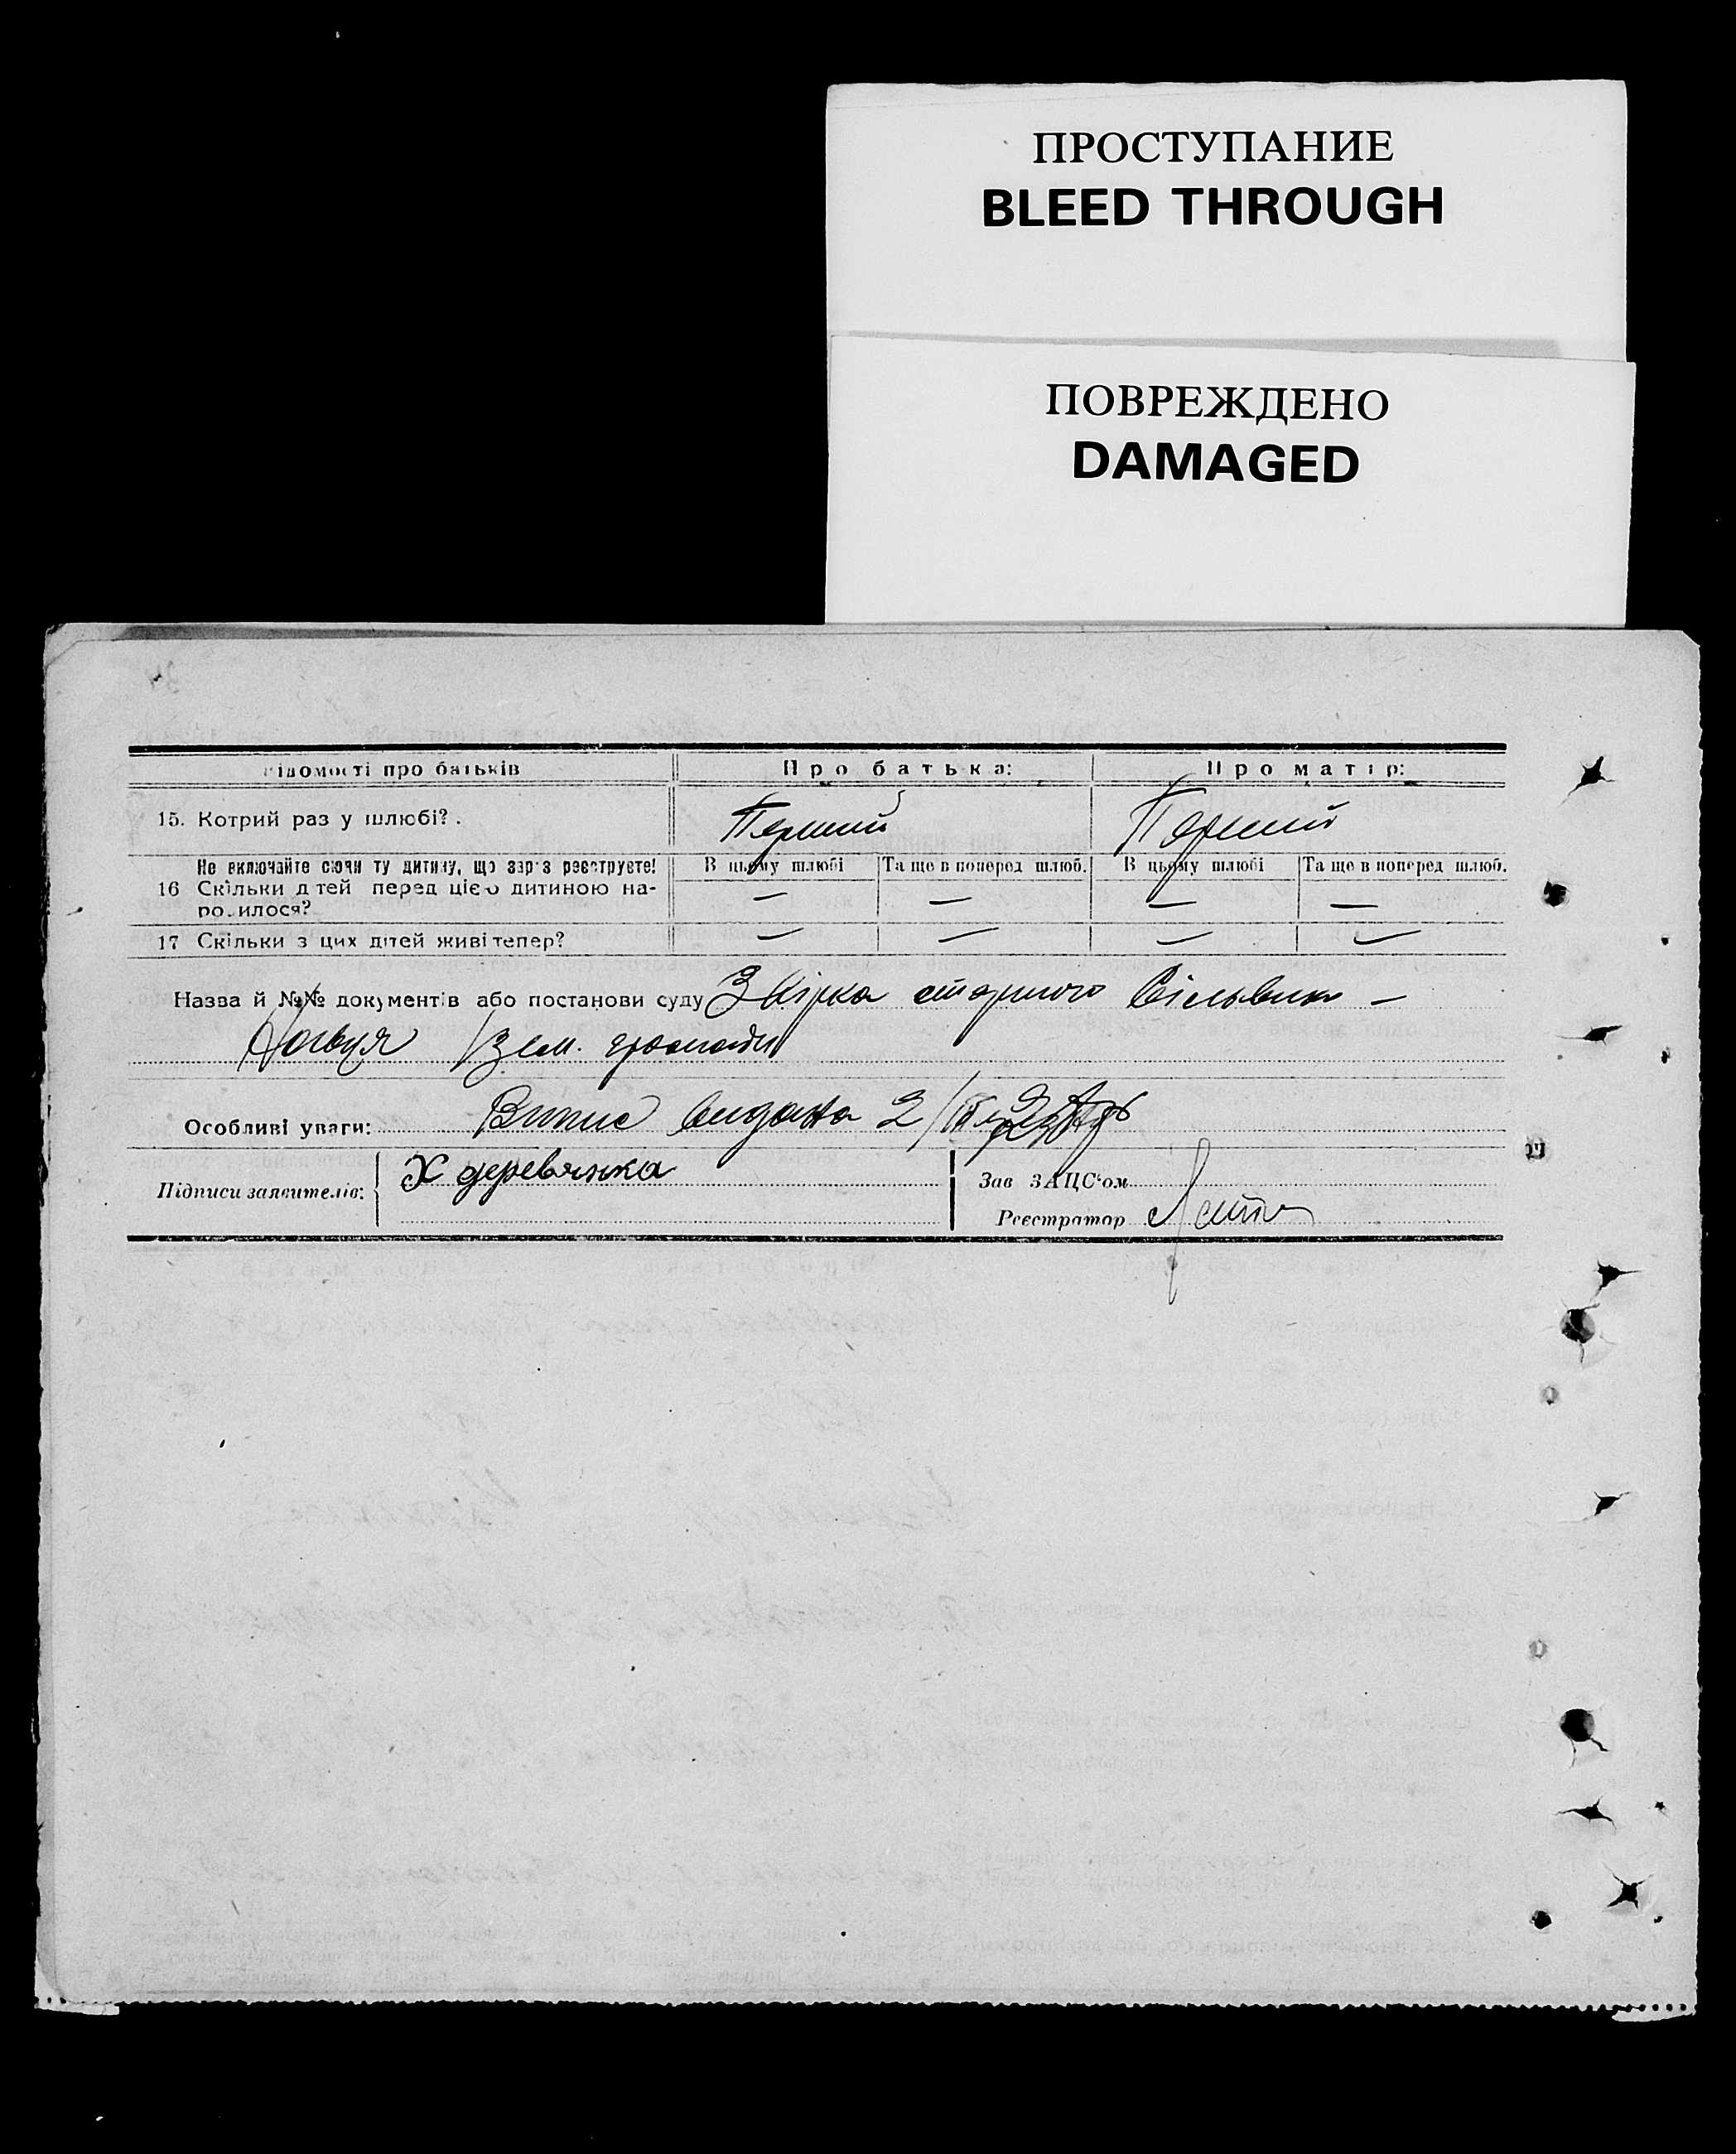 ПРОСТУПАНИЕ
BLEED THROUGH
ПОВРЕЖДЕНО
DAMAGED
ідомості про батьків Про батька: Про матір:
15. Котрий раз у шлюбі?. Перший Перший
Не включайте сюди ту дитину, що зараз реєструєте! В цьому шлюбі Та ще в поперед шлюб. В цьому шлюбі Та ще в поперед шлюб.
16 Скільки дітей перед цією дитиною на- — — — —
родилося?
17 Скільки з цих дітей живі тепер? — — — —
Назва й №№ документів або постанови суду
Зем. громади
Особливі уваги: Випис видана 2/III
Підписи заявителів: Х деревянка Зав ЗАЦС'ом
Реєстратор